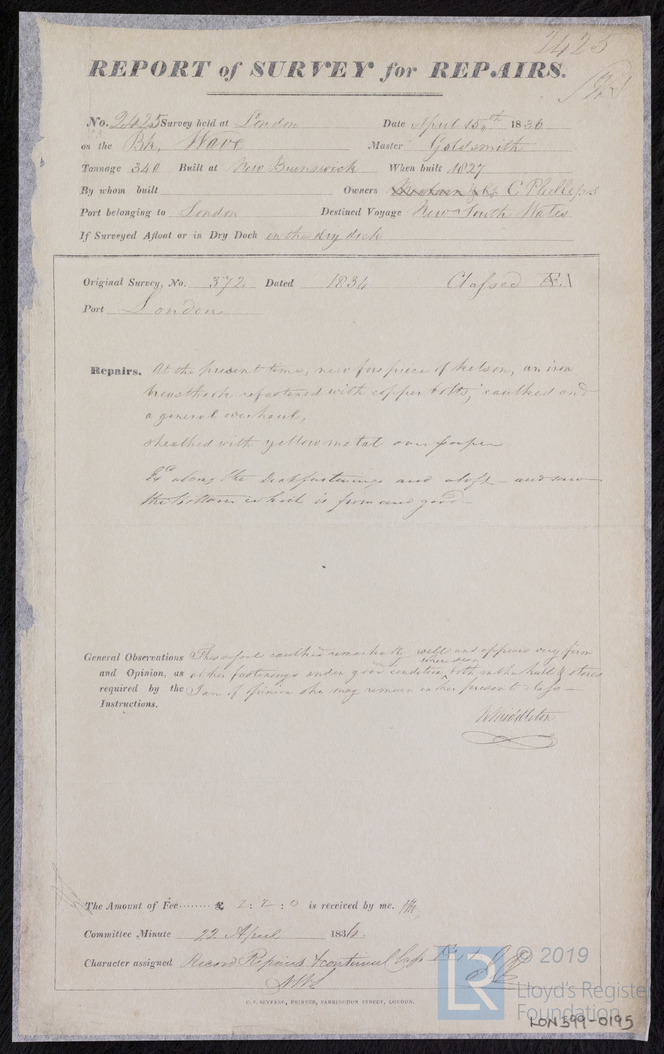 2425
REPORT of SURVEY for REPAIRS.
No. 2425 Survey held at London Date April 15th 1836
on the Bk. Wave Master Goldsmith
Tonnage 340 Built at New Brunswick When built 1827
By whom built Owners C Phillips
Port belonging to London Destined Voyage New South Wales
If Surveyed Afloat or in Dry Dock in the dry dock
Original Survey, No. 372 Dated 1834 Classed Æ.1
Port London
Repairs. At the present time, new fore piece of kelson, an iron
breasthook refastened with copper bolts, caulked and
a general overhaul,
sheathed with yellow metal over paper
along the and aloft – and saw
the bottom which is firm and good –
General Observations This vessel caulked remarkably well and appears very firm
and Opinion, as at her fastenings under good condition both in the hull & stores
required by the I am of opinion she may remain in her present class –
Instructions.
W Middleton
The Amount of Fee ........ £ 2 : 2 : 0 is received by me.
Committee Minute 22 April 1836
Character assigned Record Repairs & continued Class
PRINTER, FARRINGDON STREET, LONDON.
© 2019
LR
Lloyd's Register
Foundation
LON599-0195